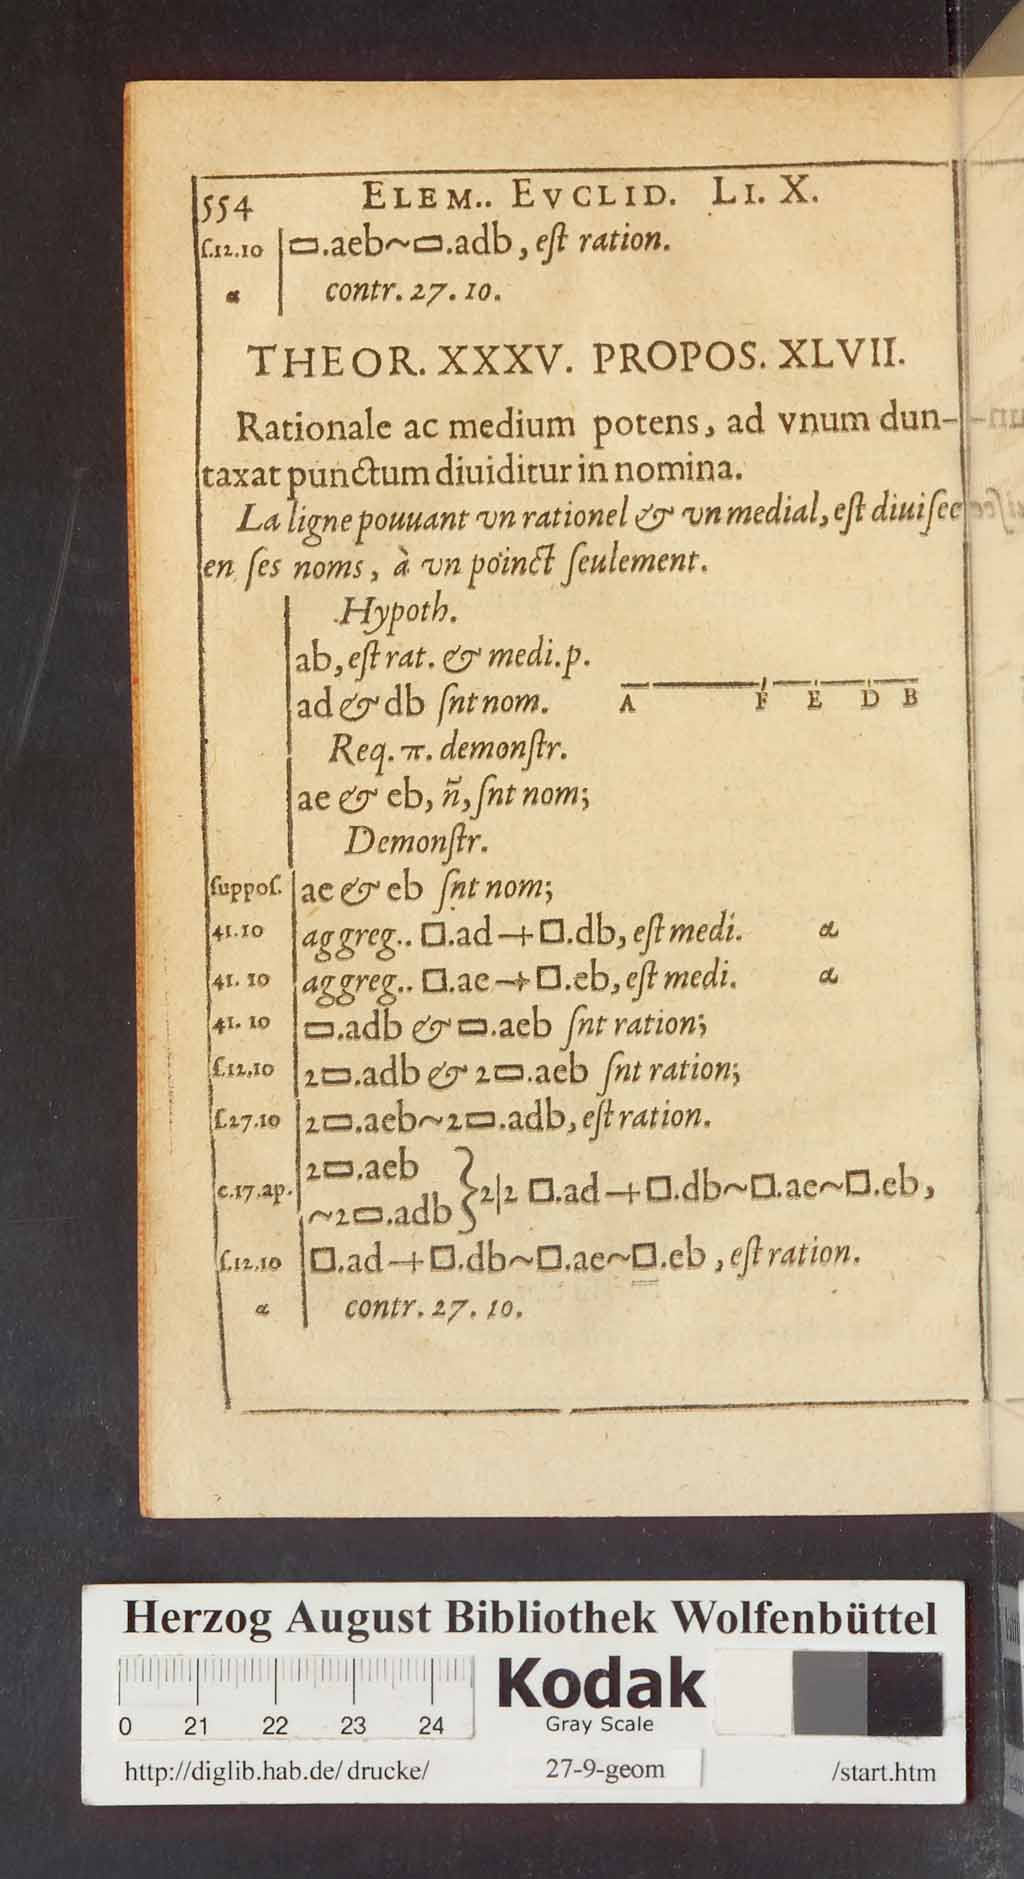 554 ELEM.. EVCLID. LI. X.
ſ.12.10 ▭.aeb~▭.adb, eſt ration.
α contr. 27. 10.
THEOR. XXXV. PROPOS. XLVII.
Rationale ac medium potens, ad vnum dun-
taxat punctum diuiditur in nomina.
La ligne pouuant vn rationel & vn medial, eſt diuiſee
en ſes noms, à vn poinct ſeulement.
Hypoth.
ab, eſt rat. & medi. p.
ad & db ſnt nom.
A F E D B
Req. π. demonſtr.
ae & eb, ñ, ſnt nom;
Demonſtr.
ſuppoſ. ae & eb ſnt nom;
41.10 aggreg.. □.ad + □.db, eſt medi. α
41. 10 aggreg.. □.ae + □.eb, eſt medi. α
41. 10 ▭.adb & ▭.aeb ſnt ration;
ſ.12.10 2▭.adb & 2▭.aeb ſnt ration;
ſ.27.10 2▭.aeb~2▭.adb, eſt ration.
2▭.aeb
c.17.ap. ~2▭.adb } 2|2 □.ad + □.db~□.ae~□.eb,
ſ.12.10 □.ad + □.db~□.ae~□.eb, eſt ration.
α contr. 27. 10.
Herzog August Bibliothek Wolfenbüttel
Kodak
Gray Scale
0 21 22 23 24
http://diglib.hab.de/drucke/ 27-9-geom /start.htm